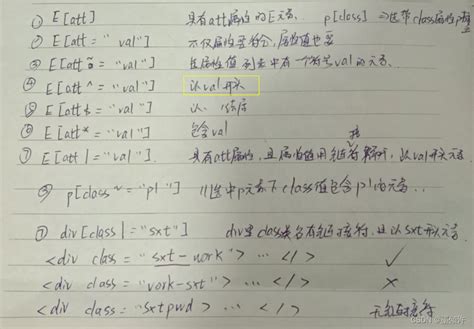 ① E[att] 具有att属性的E元素. p[class] ⇒选带class属性p标签
② E[att = "val"] 不仅属性要符合,属性值也要
③ E[att ~= "val"] 且属性值列表中有一个符号val的元素.
④ E[att ^= "val"] 以val开头
⑤ E[att $= "val"] 以...结尾
⑥ E[att * = "val"] 包含val
⑦ E[att | = "val"] 具有att属性,且属性值用连接符解析,以val开头元素
② p[class ~= "p1"] //选中p元素下class值包含p1的元素..
⑦ div[class | = "sxt"] div里class类名有连接符,且以sxt开头元素.
<div class = "sxt-work"> ... </> ✓
<div class = "work-sxt"> ... </> ×
<div class = "sxtpwd"> ... </> 无连接符